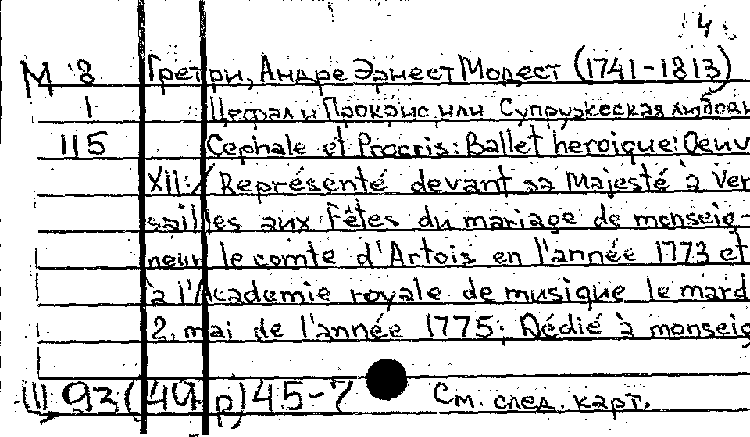 4
М 8 Гретри, Андре Эрнест Модест (1741-1813)
1 Цефал и Прокрис, или Супружеская любовь
115 Cephale et Procris: Ballet heroique: Oeuv
XII: / Représenté devant sa Majesté à Ver
sailles aux Fêtes du mariage de monseig-
neur le comte d'Artois en l'année 1773 et
à l'Academie royale de musique le mard
2 mai de l'année 1775; Dédié à monseig
93(49 р)45-7 См. след. карт.